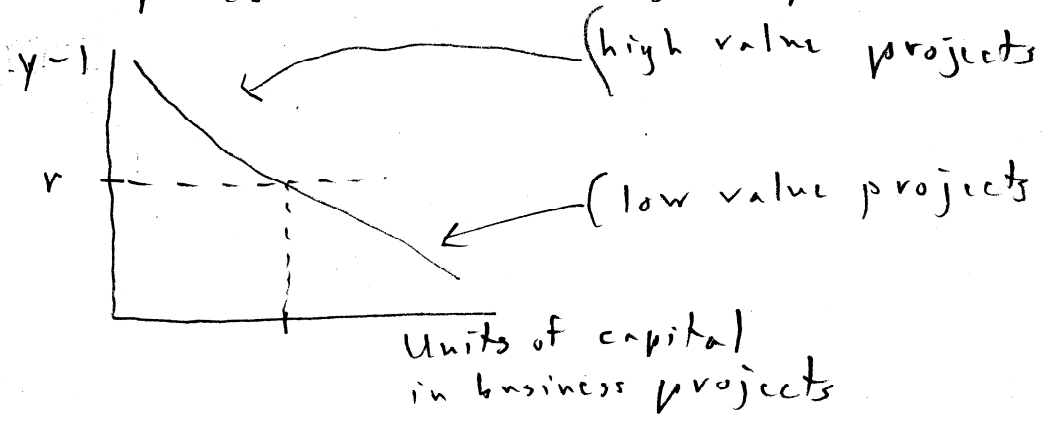 y-1
(high value projects
r
(low value projects
Units of capital
in business projects